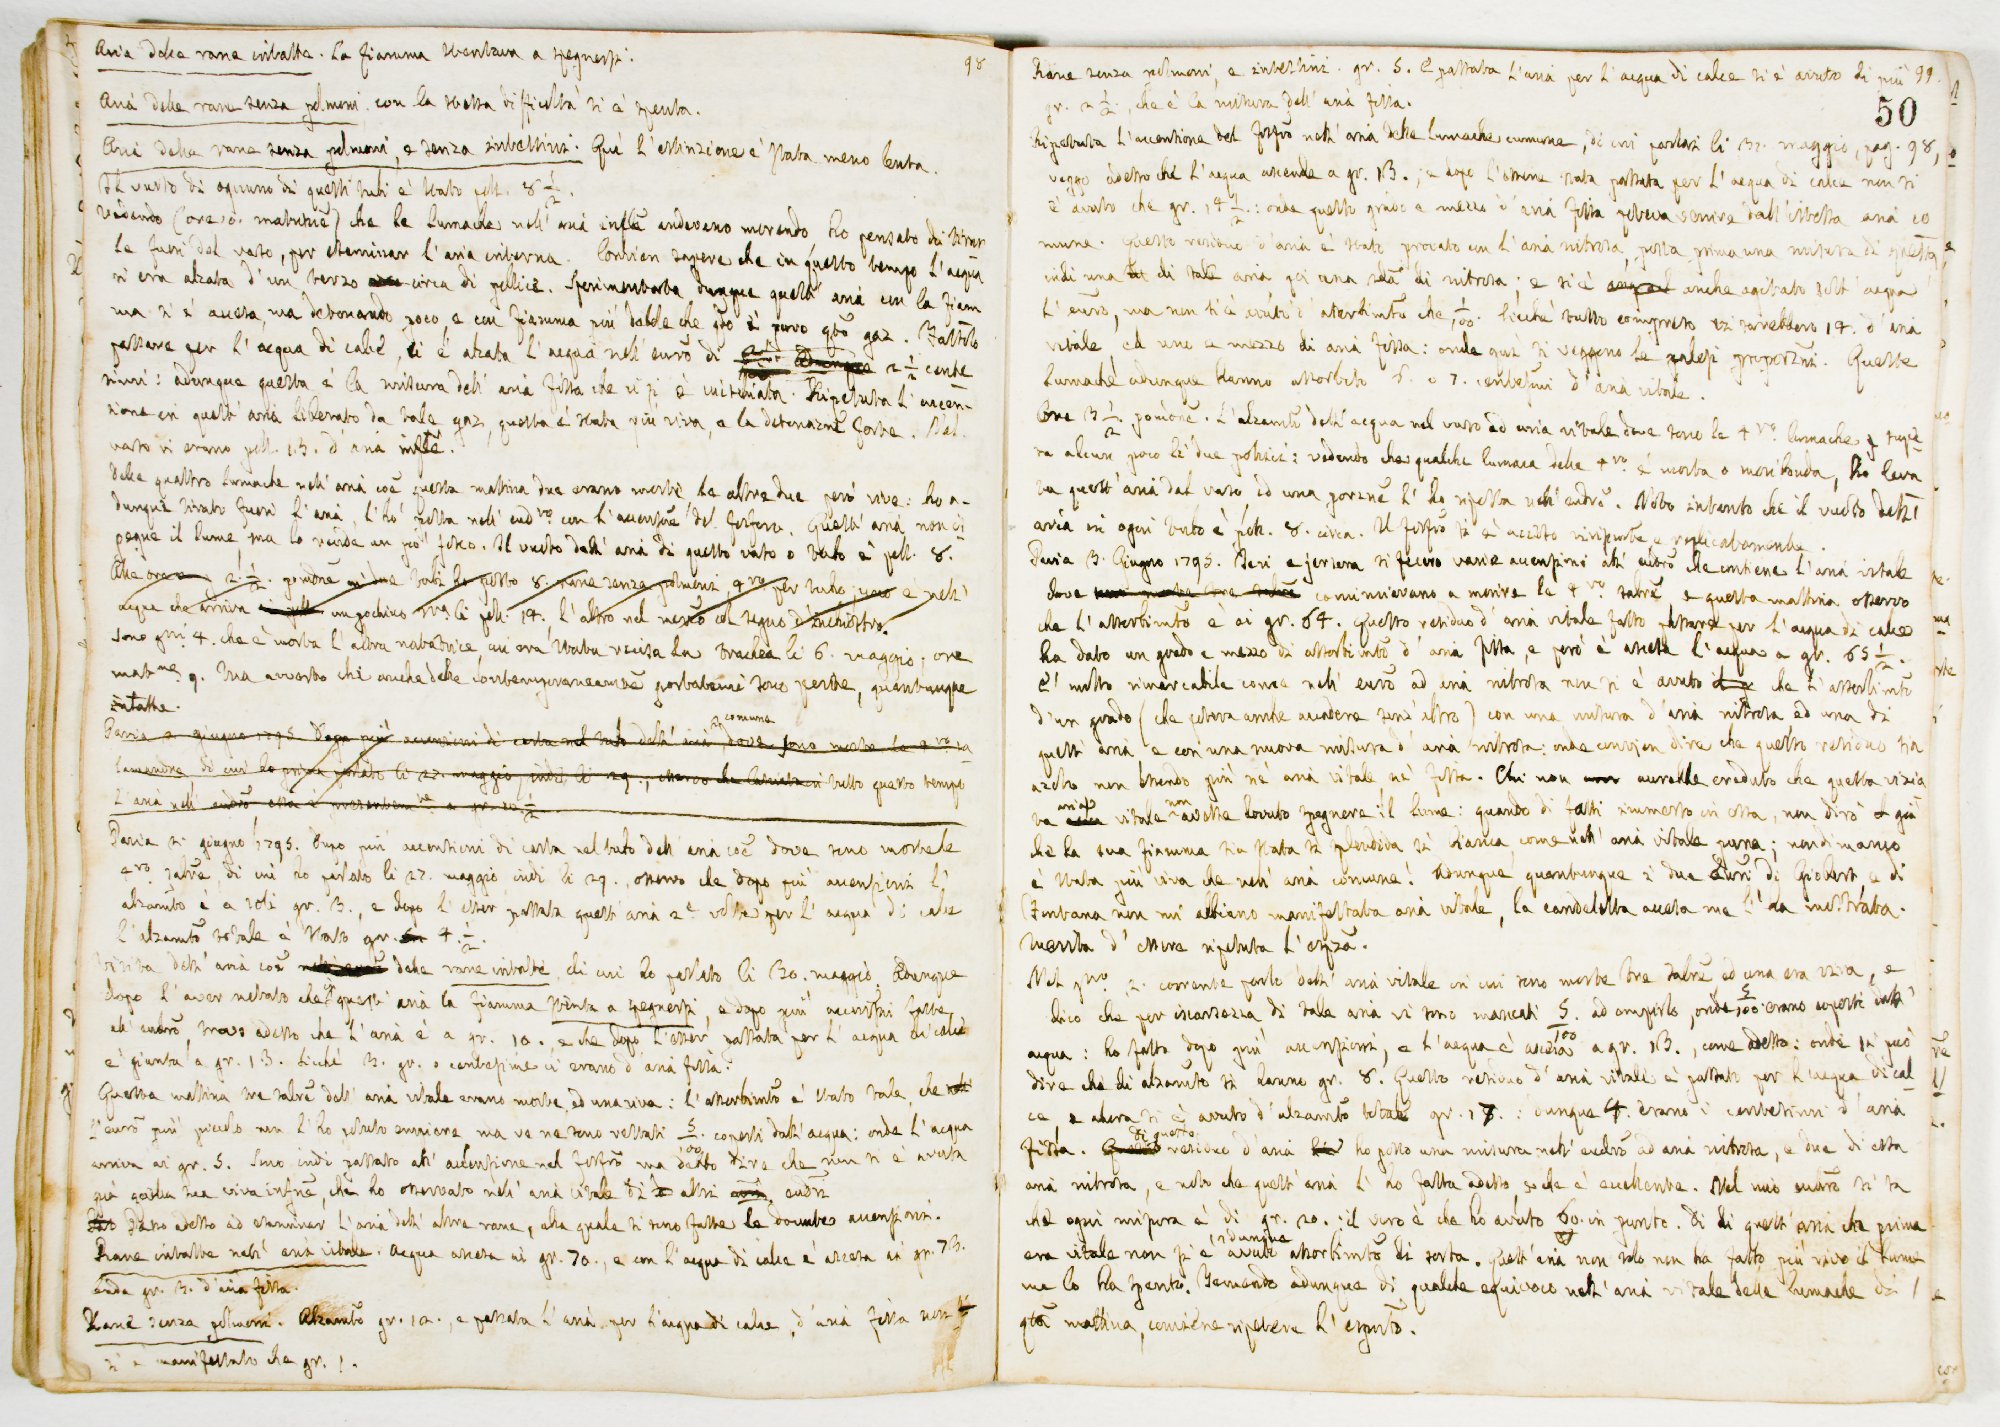 98
Aria delle rane intatte. La fiamma stentava a spegnersi.
Aria delle rane senza polmoni, con la stessa difficoltà si è spenta.
Aria delle rane senza polmoni, e senza intestini. Quì l'estinzione è stata meno lenta.
Il vuoto di ognuno di questi tubi è stato poll. 8 1/2.
Vedendo (ore 10. mattutine) che le lumache nell'aria andavano morendo ho pensato di tirar
le fuori dal vaso, per esaminar l'aria interna. Convien sapere che in questo tempo l'acqua
si era alzata d'un terzo circa di pollice. Sperimentata dunque quest'aria con la fiam
ma si è accesa, ma detonando poco, e con fiamma più debole che è puro gaz. Fattolo
passare per l'acqua di calce, si è alzata l'acqua nell'eudro di 2 1/2 cente
simi: adunque questa è la misura dell'aria fissa che vi si è Ripetuta l'accen-
sione in quest'aria liberato da tale gaz, questa è stata più viva, e la detonazne forte. Nel
vaso vi erano poll. 13. d'aria
Delle quattro lumache nell'aria coe questa mattina due erano morte le altre due però vive: ho a-
dunque tirato fuori l'aria, l'hò posta nell'eudro con l'accensione del fosforo. Quest'aria non
pegne il lume, ma lo rende un pò fosco. Il vuoto dell'aria di questo vaso o tubo è poll. 8.
Alle ore 2 1/2. pomdne in due tubi ho posto 8. rane senza polmoni, 4ro per tubo, uno e nell'
acqua che arriva un pochino li poll. 14., l'altro nel mezzo col segno d'inchiostro.
Sono gni 4. che è morta l'altra natatrice cui era stata recisa la trachea li 6. maggio, ore
matne 9. Ma avverto che anche delle contemporaneamte sono perite, quantunque
intatte.
Pavia 2 giugno 1795. Dopo più accensioni di carta nel tubo dell'aria comune dove sono morte le 4ro sa
lamandre di cui ho prima parlato li 27. maggio, indi li 29., tutto questo tempo
l'aria nell'eudro essa è a gr. 10 1/2.
Pavia 2. giugno 1795. Dopo più accensioni di carta nel tubo dell'aria coe dove sono morte le
4ro salre, di cui ho parlato li 27. maggio indi li 29., osservo che dopo più accensioni l'
alzamto è a soli gr. 3., e dopo l'esser passata quest'aria 2e volte per l'acqua di calce
l'alzamto totale è stato gr. 4. 1/2.
dell'aria coe delle rane intatte, di cui ho parlato li 30. maggio. Adunque
dopo l'aver notato che in quest'aria la fiamma stenta a spegnersi, e dopo più accensni fatte
all'eudro, trovo adesso che l'aria è a gr. 10. e che dopo l'esser passata per l'acqua di calce
è giunta a gr. 13. Sicchè 3. gr. o centesime ci erano d'aria fissa.
Questa mattina tre salre dell'aria vitale erano morte, ed una viva: l'assorbimto è stato tale, che
l'eudro più piccolo non l'ho potuto empiere, ma ve ne sono restati 5/100. coperti dall'acqua: onde l'acqua
arriva ai gr. 5. Sono indi passato all'accensione nel fosfro ma debbo dire che non si è avuta
già quella sua viva che ho osservato nell'aria vitale di altri eudri
Passo adesso ad esaminar l'aria dell'altre rane, alla quale si sono fatte le dovute accensioni.
Rane intatte nell'aria vitale. Acqua ascesa ai gr. 70., e con l'acqua di calce è ascesa ai gr. 73.
onde gr. 3. d'aria fissa.
Rane senza polmoni. Alzamto gr. 10., e passata l'aria per l'acqua di calce, d'aria fissa non
si è manifestato che gr. 1.
99.
50
Rane senza polmoni, e intestini. gr. 5. E passata l'aria per l'acqua di calce si è avuto di più
gr. 2 1/2., che è la misura dell'aria fissa.
Ripetuta l'accensione del fosfro nell'aria delle lumache comune, di cui parlasi li 31. maggio, pag. 98,
veggo adesso che l'acqua ascende a gr. 13., e dopo l'essere stata passata per l'acqua di calce non si
è avuto che gr. 14 1/2.: onde questo grado e mezzo d'aria fissa poteva venire dall'istessa aria co
mune. Questo residuo d'aria è stato provato con l'aria nitrosa, posta prima una misura di questa,
indi una di tale aria poi una di nitrosa; e si è anche agitato sott'acqua
l'eudro, ma non si è avuto d'assorbimto che 1/100. Sicchè tutto compreso vi sarebbero 14. d'aria
vitale, ed uno e mezzo di aria fissa: onde quì si veggono le palesi proporzni. Queste
lumache adunque hanno assorbito 6. o 7. centesimi d'aria vitale.
Ore 3 1/2 pomdne. L'alzamto dell'acqua nel vaso ad aria vitale dove sono le 4ro lumache supe
ra alcun poco li due pollici: vedendo che qualche lumaca delle 4ro è morta o moribonda, ho leva
ta quest'aria dal vaso ed una porzne l'ho riposta nell'eudro. Noto intanto che il vuoto dell'
aria in ogni tubo è poll. 8. circa. Il fosfro si è acceso e replicatamente.
Pavia 3. Giugno 1795. Ieri e jersera si fecero varie accensioni all'eudro che contiene l'aria vitale
dove cominciavano a morire le 4ro salre e questa mattina osservo
che l'assorbimto è ai gr. 64. Questo residuo d'aria vitale fatto passare per l'acqua di calce
ha dato un grado e mezzo di assorbimto d'aria fissa, e però è ascesa l'acqua a gr. 65 1/2.
È molto rimarcabile come nell'eudro ad aria nitrosa non si è avuto che l'assorbimto
d'un grado (che poteva anche accadere senz'altro) con una misura d'aria nitrosa ed una di
quest'aria e con una nuova misura d'aria nitrosa: onde convien dire che questo residuo sia
azoto non essendo più nè aria vitale nè fissa. Chi non avrebbe creduto che questa vizia
ta aria vitale non avesse dovuto spegnere il lume: quando di fatti immerso in essa, non dirò già
che la sua fiamma sia stata sì splendida sì bianca, come nell'aria vitale pura; nondimanco
è stata più viva che nell'aria comune! Adunque quantunque i due eudri di Giobert, e di
Fontana non mi abbiano manifestata aria vitale, la candeletta accesa me l'ha mostrata.
Merita d'essere ripetuta l'esprza.
Nel gno 2. corrente parlo dell'aria vitale in cui sono morte tre salre, ed una era viva, e
dico che per iscarsezza di tale aria vi sono mancati 5/100. ad empirlo, onde 5/100 erano coperti dall'
acqua: ho fatto dopo più accensioni, e l'acqua è ascesa a gr. 13., come adesso: onde si può
dire che di alzamto si hanno gr. 8. Questo residuo d'aria vitale è passato per l'acqua di cal
ce, e allora si è avuto d'alzamto totale gr. 17.: dunque 4. erano i centesimi d'aria
fissa. Di questo residuo d'aria ho posto una misura nell'eudro ad aria nitrosa, e due di essa
aria nitrosa, e noto che quest'aria l'ho fatta adesso, e che è eccellente. Nel mio eudro si sa
che ogni misura è di gr. 20.: il vero è che ho avuto 60. in punto. Di quest'aria che prima
era vitale non si è adunque avuto assorbimto di sorta. Quest'aria non solo non ha fatto più vivo il lume
ma lo ha spento. Temendo adunque di qualche equivoco nell'aria vitale delle lumache di
qta mattina, conviene ripetere l'esprto.